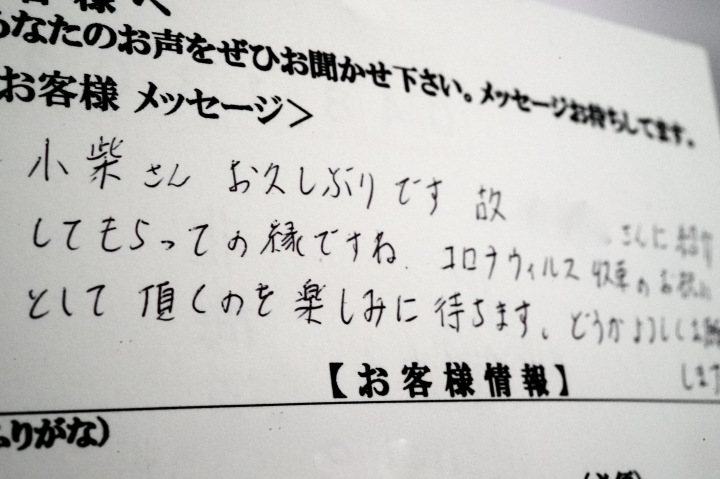 様へ
あなたのお声をぜひお聞かせ下さい。メッセージお待ちしてます。
お客様 メッセージ>
小柴さん お久しぶりです 故 さんに紹介
してもらっての縁ですね. コロナウィルス 収束のお祝い
として 頂くのを楽しみに待ちます. どうかよろしくお願
します
【お客様情報】
ふりがな)